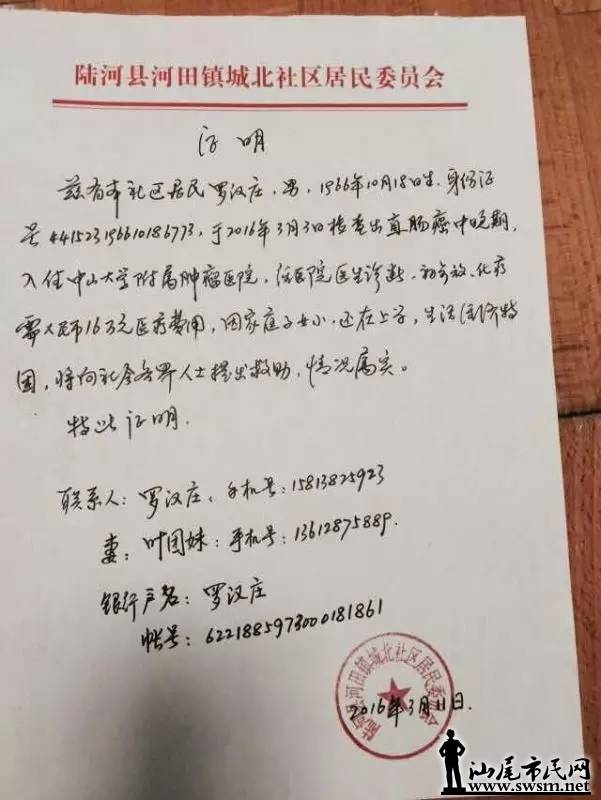 陆河县河田镇城北社区居民委员会
证明
兹有本社区居民罗汉庄，男，1966年10月18日生，身份证
号441523196610186773，于2016年3月3日检查出直肠癌中晚期，
入住中山大学附属肿瘤医院，经医院医生诊断，初步放、化疗
需人民币16万元医疗费用，因家庭子女小，还在上学，生活经济特
困，将向社会各界人士提出救助，情况属实。
特此证明．
联系人：罗汉庄、手机号：15813825923
妻：叶团妹：手机号：13612875889．
银行户名：罗汉庄
帐号：6221885973000181861
陆河县河田镇城北社区居民委员会
2016年3月11日．
汕尾市民网
www.swsm.net